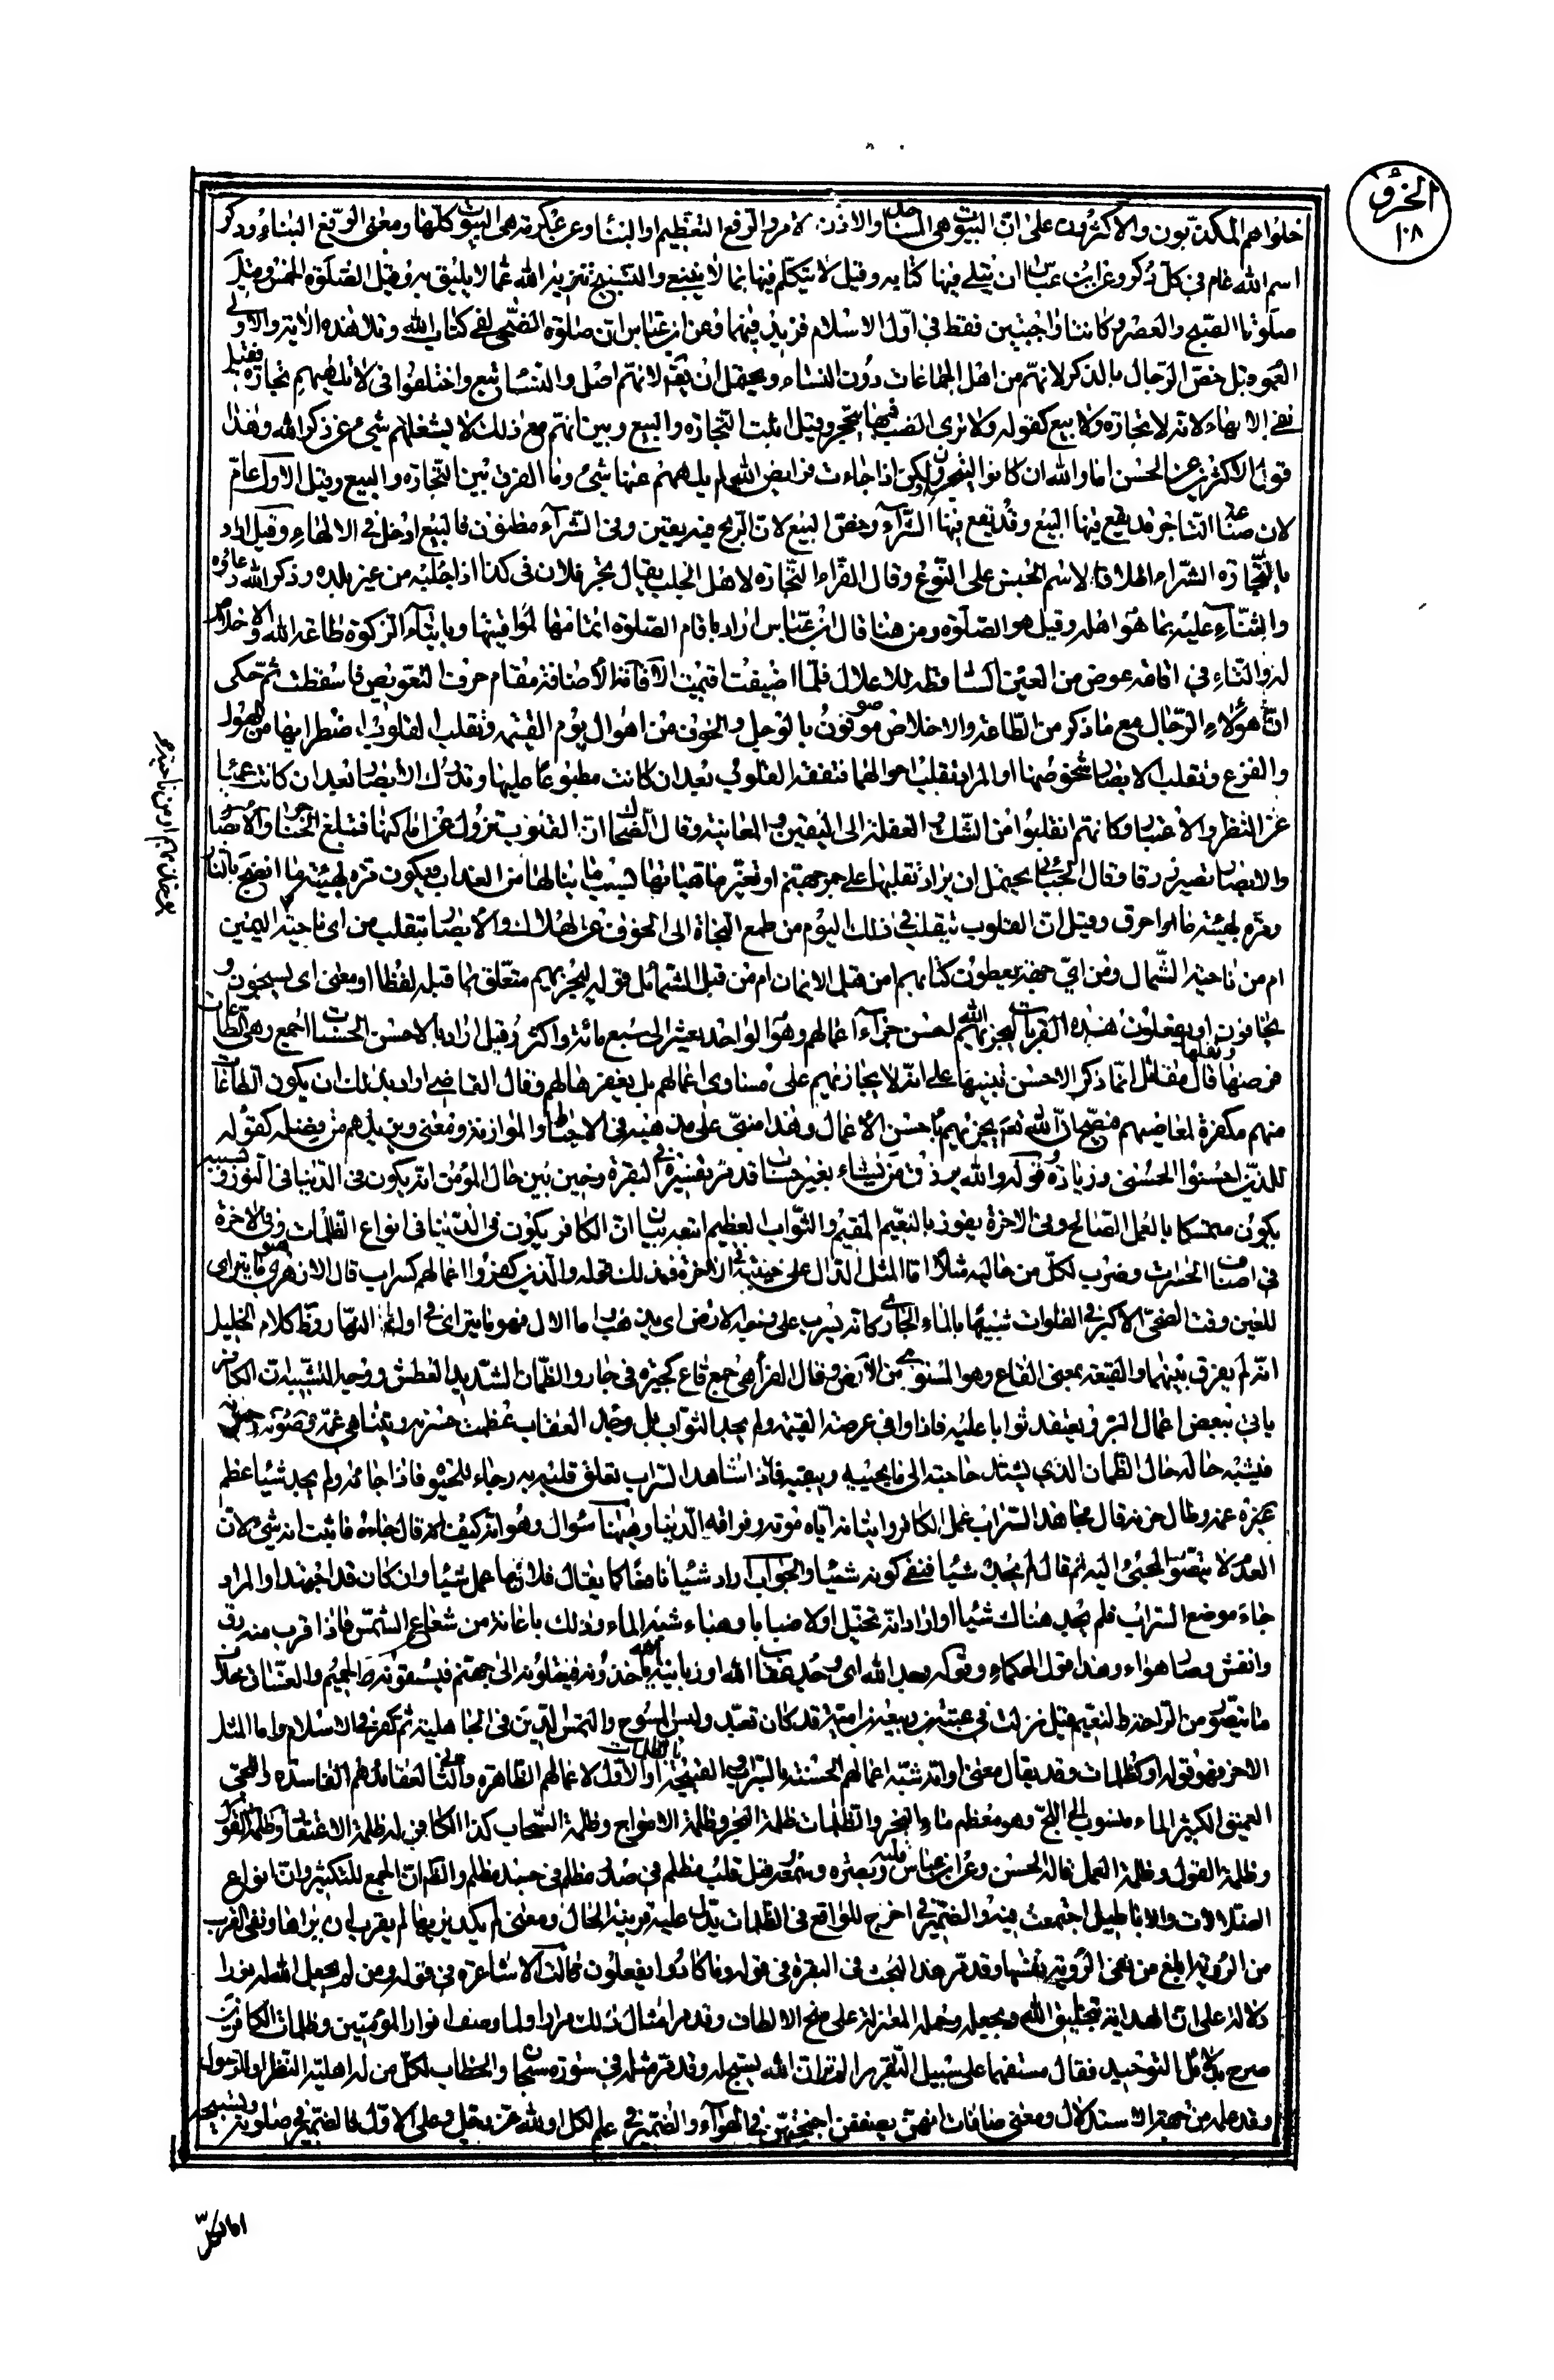 الجزؤ
١٨
خلوا هم المكذبون والاكثرون على ان البيوت هى المساجد والاذن الامر والرفع التعظيم او البناء وعن عكرمة هى البيوت كلها ومعنى الرفع البناء وذكر
اسم الله عام فى كل ذكر وعن ابن عباس ان يتلى فيها كتابه وقيل لا يتكلم فيها بما لا ينبغى والتسبيح تنزيه الله عما لا يليق به وقيل الصلوة الخمس وقيل
صلوتا الصبح والعصر وكانتا واجبتين فقط فى اول الاسلام فزيد فيهما وعن ابن عباس ان صلوة الضحى لفى كتاب الله وتلا هذه الاية والاولى
العموم قيل خص الرجال بالذكر لانهم من اهل الجماعات دون النساء ويحتمل ان يقال لانهم اصل والنساء تبع واختلفوا فى لا تلهيهم تجارة فقيل
نفى الالهاء لانه لا تجارة ولا بيع كقوله ولا ترى الضب بها ينجحر وقيل اثبت التجارة والبيع وبين انهم مع ذلك لا يشغلهم شىء عن ذكر الله وهذا
قول الاكثرين عن الحسن اما والله ان كانوا ليتجرون ولكن اذا جاءت فرايض الله لم يلههم عنها شىء وما الفرق بين التجارة والبيع وقيل الاول عام
لان صناعة التاجر قد يقع فيها البيع وقد يقع فيها الشراء وخص البيع لان الربح فيه يقين وفى الشراء مظنون فالبيع ادخل فى الالهاء وقيل اراد
بالتجارة الشراء اطلاقا لاسم الجنس على النوع وقال الفراء التجارة لاهل الجلب يقال تجر فلان فى كذا اذا جلبه من غير بلده وذكر الله دعاؤه
والثناء عليه بما هو اهله وقيل هو الصلوة ومن هنا قال ابن عباس اراد باقام الصلوة اتمامها لمواقيتها وبايتاء الزكوة طاعة الله والاخلاص
له والتاء فى اقامة عوض من العين الساقطة للاعلال فلما اضيفت اقيمت الاضافة مقام حرف التعويض فاسقطت ثم حكى
ان هؤلاء الرجال مع ما ذكر من الطاعة والاخلاص موصوفون بالوجل والخوف من اهوال يوم القيمة وتقلب القلوب اضطرابها من الهول
والفزع وتقلب الابصار شخوصها او المراد تقلب احوالهما فتفقه القلوب بعد ان كانت مطبوعا عليها وتدرك الابصار بعد ان كانت عميا
عن النظر والاعتبار وكانهم انقلبوا من الشك والغفلة الى اليقين والمعاينة وقال الضحاك ان القلوب تزول عن اماكنها فتبلغ الحناجر والابصار
والابصار تصير زرقا وقال الجبائى يحتمل ان يراد تقليبها على جمر جهنم او تغير هيئاتها بسبب ما ينالها من العذاب فيكون مرة بهيئة ما انضج بالنار
ومرة بهيئة ما احرق وقيل ان القلوب تتقلب فى ذلك اليوم من طمع النجاة الى الخوف من الهلاك والابصار تتقلب من اى ناحية اليمين
ام من ناحية الشمال ومن اى جهة يعطون كتابهم امن قبل الايمان ام من قبل الشمائل قوله ليجزيهم متعلق بما قبله لفظا او معنى اى يسبحون و
يخافون او يفعلون هذه القربات ليجزيهم الله احسن جزاء اعمالهم وهو الواحد بعشر الى سبع مائة واكثر وقيل اراد بالاحسن الحسنات اجمع وهى الطاعات
فرضها ونفلها قال مقاتل انما ذكر الاحسن تنبيها على انه لا يجازيهم على مساوى اعمالهم بل يغفرها لهم وقال القاضى اراد بذلك ان يكون الطاعات
منهم مكفرة لمعاصيهم فيصح ان الله تعالى يجزيهم باحسن الاعمال وهذا مبنى على مذهبه فى الاحباط والموازنة ومعنى ويزيدهم من فضله كقوله
للذين احسنوا الحسنى وزيادة وقوله والله يرزق من يشاء بغير حساب قد مر تفسيره فى البقرة وحين بين حال المؤمن انه يكون فى الدنيا فى النور وبسببه
يكون متمسكا بالعمل الصالح وفى الاخرة يفوز بالنعيم المقيم والثواب العظيم اتبعه بيان ان الكافر يكون فى الدنيا فى انواع الظلمات وفى الاخرة
فى اصناف الحسرات وضرب لكل من حاليه مثلا اما المثل الدال على خيبته فى الاخرة فذلك قوله والذين كفروا اعمالهم كسراب قال الازهرى هو ما يتراى
للعين وقت الضحى الاكبر فى الفلوات شبيها بالماء الجارى كانه يسرب على وجه الارض اى يذهب اما الآل فهو ما يتراى فى اول النهار وظ كلام الخليل
انه لم يفرق بينهما والقيعة بمعنى القاع وهو المستوى من الارض وقال الفراء هى جمع قاع كجيرة فى جار والظمان الشديد العطش ووجه التشبيه ان الكافر
ياتى ببعض اعمال البر ويعتقد ثوابا عليه فاذا وافى عرصة القيمة ولم يجد الثواب بل وجد العقاب عظمت حسرته ويتناهى غمه
فيشبه حاله حال الظمان الذى يشتد حاجته الى ما يحييه ويبقيه فاذا شاهد السراب تعلق قلبه به رجاء للحيوة فاذا جاءه ولم يجد شيئا عظم
غمه وطال حزنه قال مجاهد السراب عمل الكافر واتيانه اياه موته وفراقه الدنيا وههنا سؤال وهو انه كيف قال جاءه فاثبت انه شىء لان
العدم لا يتصور المجىء اليه ثم قال لم يجده شيئا فنفى كونه شيئا والجواب اراد شيئا نافعا كما يقال فلان ما عمل شيئا وان كان قد اجتهد او المراد
جاء موضع السراب فلم يجد هناك شيئا او اراد انه تخيل اولا ضبابا وهباء شبه الماء وذلك باعانة من شعاع الشمس فاذا قرب منه رق
وانفش وصار هواء وهذا قول الحكماء وقوله ووجد الله اى وجد عقاب الله او زبانية الله ياخذونه فيعتلونه الى جهنم فيسقونه الحميم والغساق بخلاف
ما يتصور من الراحة والنعيم قيل نزلت فى عتبة بن ربيعة بن امية قد كان تعبد ولبس المسوح والتمس الدين فى الجاهلية ثم كفر فى الاسلام واما المثل
الاخر فهو قوله او كظلمات وقد يقال معنى او انه شبه اعمالهم الحسنة بالسراب والقبيحة بالظلمات او الاول لاعمالهم الظاهرة والثانى لعقائدهم الفاسدة واللجى
العميق الكثير الماء منسوب الى اللج وهو معظم ماء البحر والظلمات ظلمة البحر وظلمة الامواج وظلمة السحاب كذا الكافر له ظلمة الاعتقاد
وظلمة القول وظلمة العمل قاله الحسن وعن ابن عباس قلبه وبصره وسمعه وقيل قلب مظلم فى صدر مظلم فى جسد مظلم والظاهر ان الجمع للتكثير وان انواع
الضلالات والاباطيل اجتمعت فيه والضمير فى اخرج للواقع فى الظلمات يدل عليه قرينة الحال ومعنى لم يكد يريها لم يقرب ان يراها ونفى القرب
من الرؤية ابلغ من نفى الرؤية نفسها وقد مر هذا البحث فى البقرة فى قوله وما كادوا يفعلون قالت الاشاعرة فى قوله ومن لم يجعل الله له نورا
دلالة على ان الهداية بتخليق الله وبجعله وحمله المعتزلة على منح الالطاف وقد مر امثال ذلك مرارا ولما وصف انوار المؤمنين وظلمات الكافرين
صرح بدلائل التوحيد فقال مستفهما على سبيل التقرير الم تر ان الله يسبح له وقد مر مثله فى سورة سبحان والخطاب لكل من له اهلية النظر او للرسول
وقد علمه من جهة الاستدلال ومعنى صافات انهن يصففن اجنحتهن فى الهواء والضمير فى علم لكل او لله عز وجل وعلى الاول فالضمير فى صلوته وتسبيحه
اما لكل